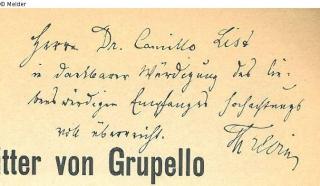 © Melder
Herrn Dr. Camillo List
in dankbarer Würdigung des lie-
benswürdigen Empfanges hochachtungs
voll überreicht.
itter von Grupello